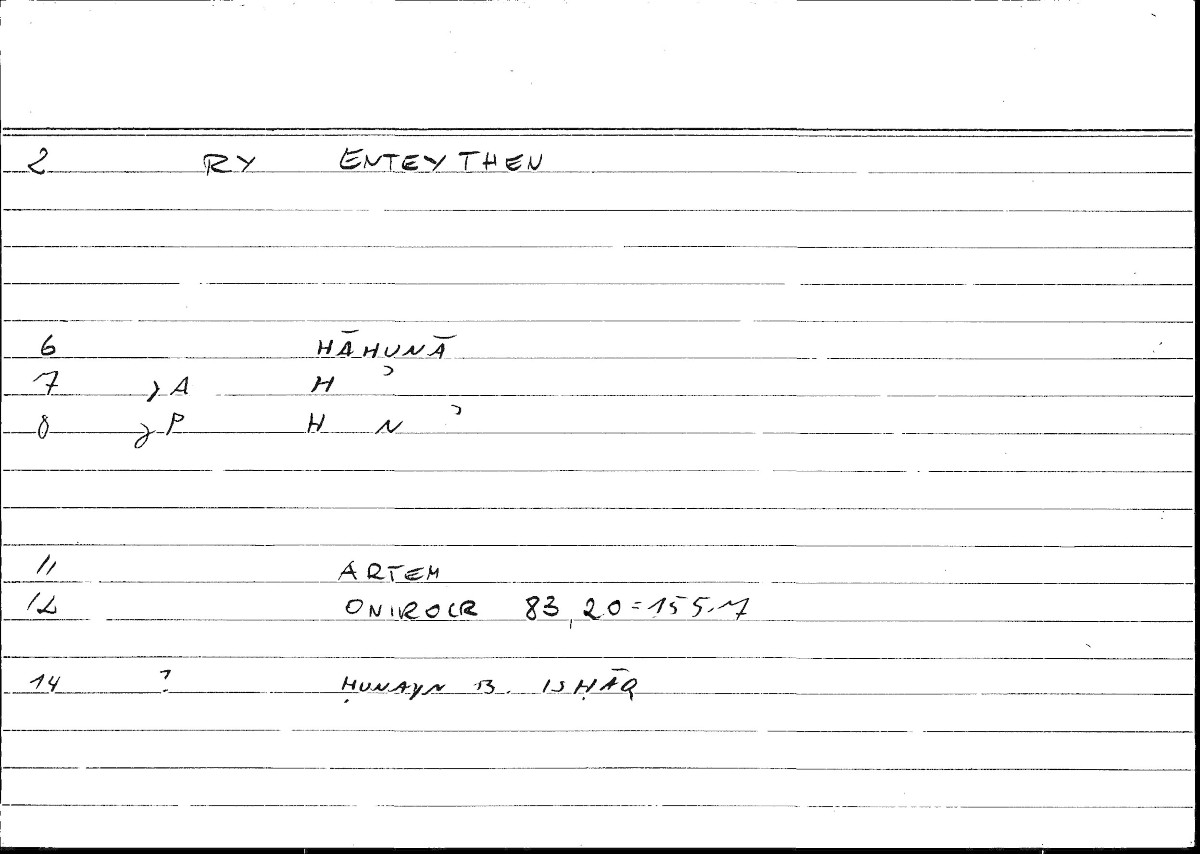 2 RY ENTEYTHEN
6 HĀHUNĀ
7 A H ʾ
8 P H N ʾ
11 ARTEM
12 ONIROCR 83,20=155.7
14 ? ḤUNAYN B. ISḤĀQ